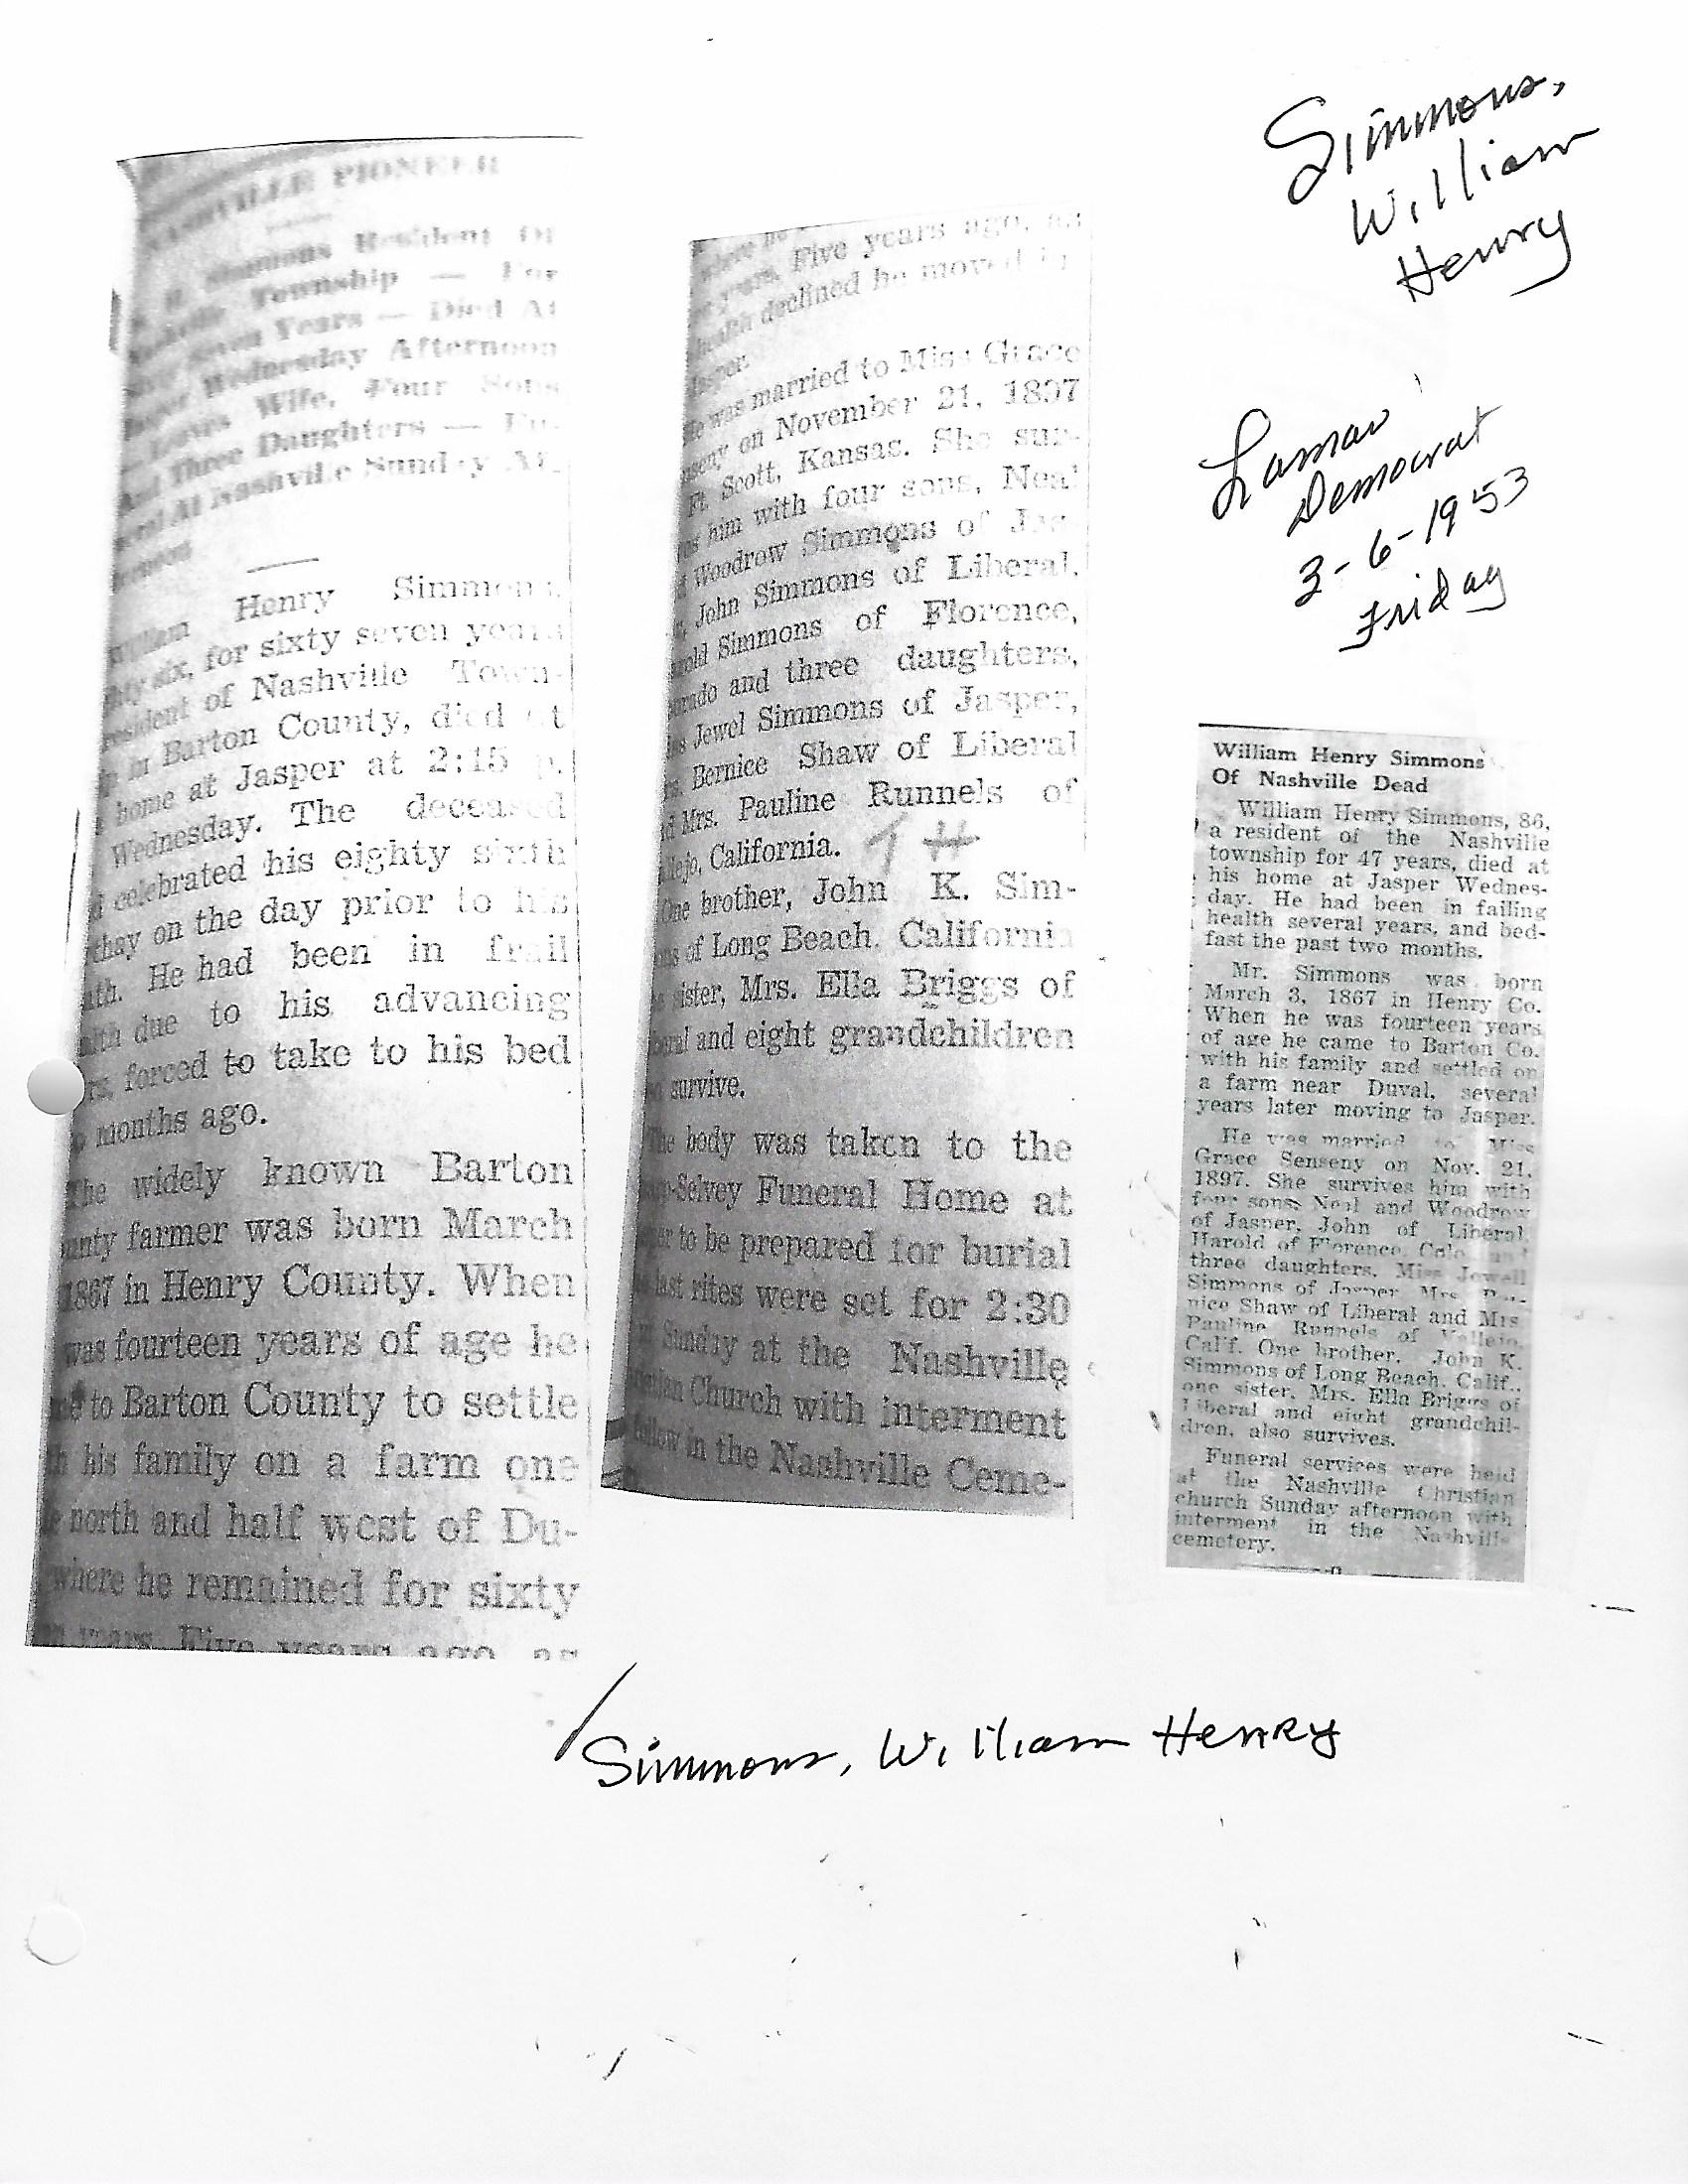 Simmons,
William
Henry
Lamar
Democrat
3-6-1953
Friday
NASHVILLE PIONEER
H. Simmons Resident Of
Nashville Township — For
Seven Years — Died At
Jasper Wednesday Afternoon
— Leaves Wife, Four Sons
And Three Daughters — Fu-
At Nashville Sunday Af-
William Henry Simmons,
hty six, for sixty seven years
resident of Nashville Town-
p in Barton County, died at
home at Jasper at 2:15 p.
Wednesday. The deceased
d celebrated his eighty sixth
thay on the day prior to his
ath. He had been in frail
alth due to his advancing
rs, forced to take to his bed
o months ago.
The widely known Barton
unty farmer was born March
1867 in Henry County. When
was fourteen years of age he
me to Barton County to settle
h his family on a farm one
north and half west of Du-
where he remained for sixty
years. Five years ago, as
where he
years. Five years ago, as
health declined he moved to
Jasper.
He was married to Miss Grace
nseny on November 21, 1897
Ft. Scott, Kansas. She sur-
es him with four sons, Neal
d Woodrow Simmons of Jas-
r, John Simmons of Liberal,
arold Simmons of Florence,
orado and three daughters,
ss Jewel Simmons of Jasper,
s. Bernice Shaw of Liberal
d Mrs. Pauline Runnels of
allejo, California.
One brother, John K. Sim-
ons of Long Beach, California
e sister, Mrs. Ella Briggs of
beral and eight grandchildren
o survive.
The body was taken to the
-Selvey Funeral Home at
per to be prepared for burial
last rites were set for 2:30
Sunday at the Nashville
istian Church with interment
follow in the Nashville Ceme-
William Henry Simmons
Of Nashville Dead
William Henry Simmons, 86,
a resident of the Nashville
township for 47 years, died at
his home at Jasper Wednes-
day. He had been in failing
health several years, and bed-
fast the past two months.
Mr. Simmons was born
March 3, 1867 in Henry Co.
When he was fourteen years
of age he came to Barton Co.
with his family and settled on
a farm near Duval, several
years later moving to Jasper.
He was married to Miss
Grace Senseny on Nov. 21,
1897. She survives him with
four sons, Neal and Woodrow
of Jasper, John of Liberal,
Harold of Florence, Colo. and
three daughters, Miss Jewell
Simmons of Jasper, Mrs. Ber-
nice Shaw of Liberal and Mrs
Pauline Runnels of Vallejo,
Calif. One brother, John K.
Simmons of Long Beach, Calif.,
one sister, Mrs. Ella Briggs of
Liberal and eight grandchil-
dren, also survives.
Funeral services were held
at the Nashville Christian
church Sunday afternoon with
interment in the Nashville
cemetery.
Simmons, William Henry